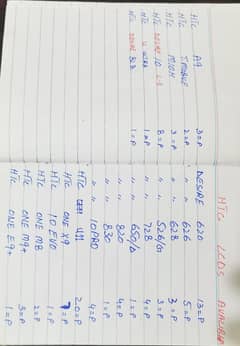 HTC A9 3=P
HTC T MOBILE 2=P
HTC M10H 3=P
HTC DESIRE 10 L.S 8=P
HTC U ULTRA 1=P
HTC 1=P
HTC LCDS
" DESIRE 620 13=P
" " 626 5=P
" " 628 3=P
" " 526/G+ 3=P
" " 728 4=P
" " 650/6 1=P
" " 820 4=P
" " 830 1=P
" " 10 PRO 4=P
HTC U11 2.0=P
HTC ONE X9 7=P
HTC 10 EVO 1=P
HTC ONE M8 2=P
HTC ONE M9+ 3=P
HTC ONE E9+ 1=P